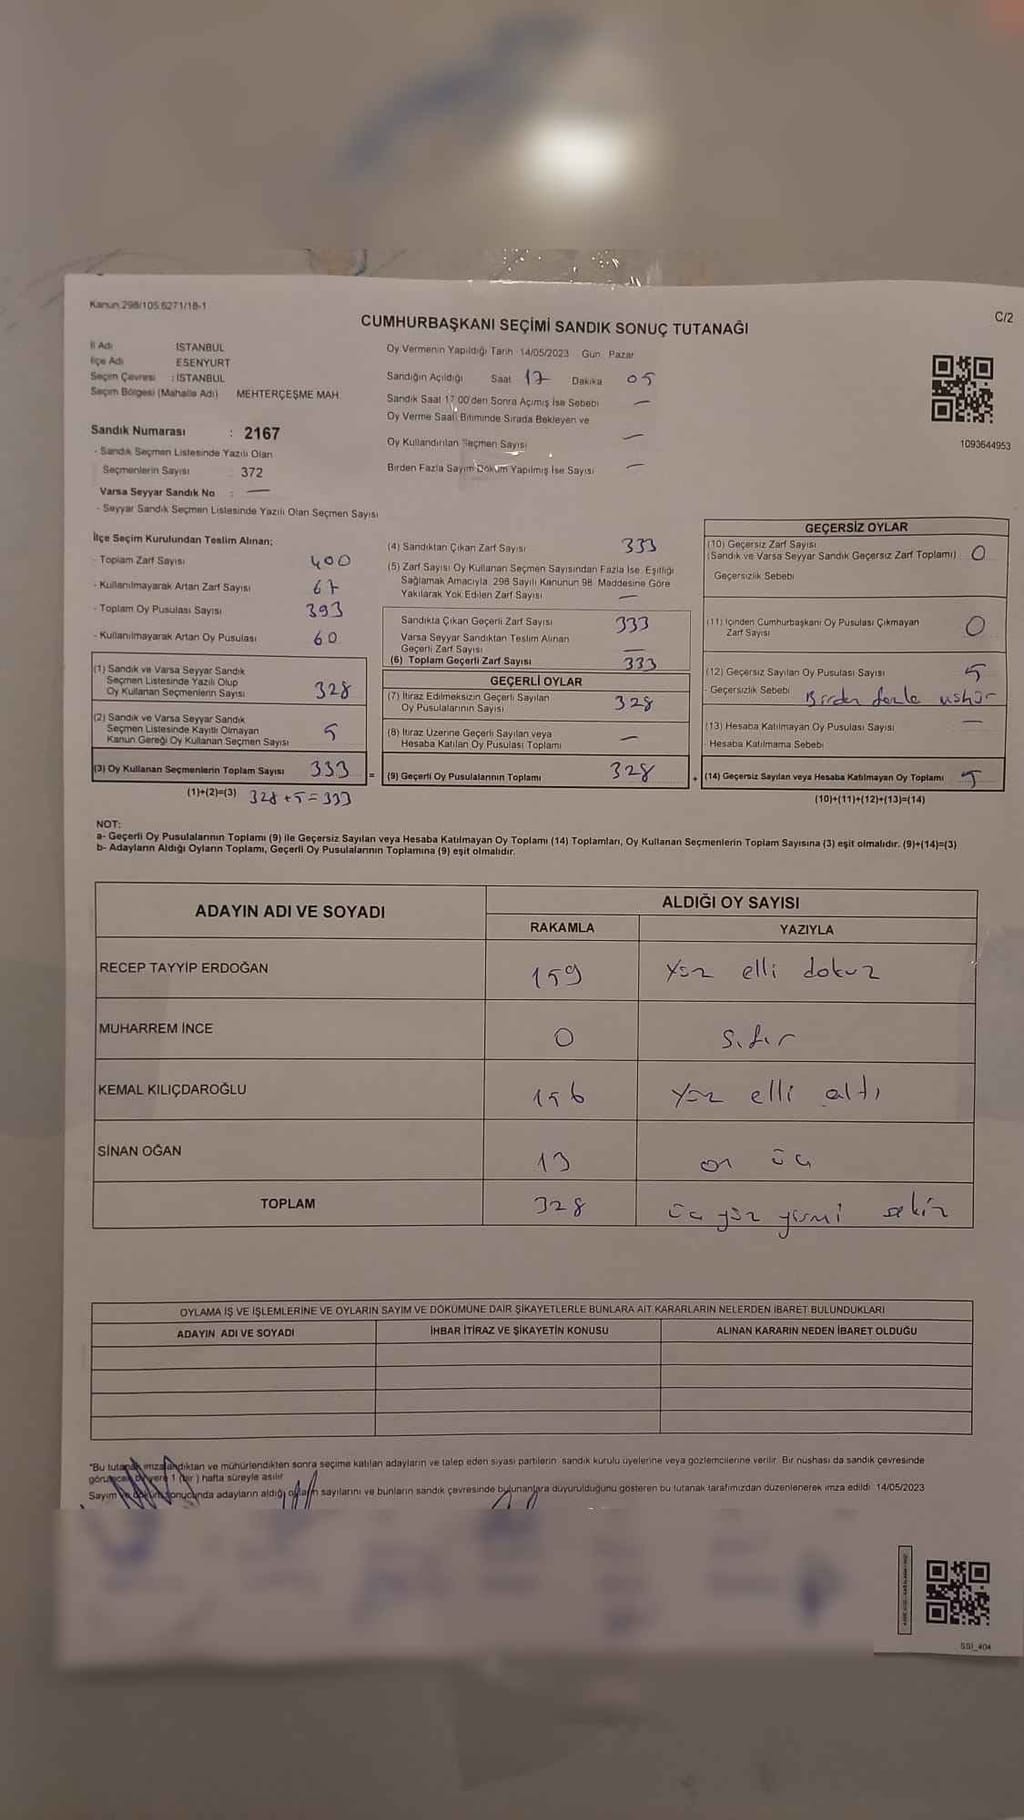 Kanun.298/105.6271/18-1
C/2
CUMHURBAŞKANI SEÇİMİ SANDIK SONUÇ TUTANAĞI
İl Adı İSTANBUL
İlçe Adı ESENYURT
Seçim Çevresi : İSTANBUL
Seçim Bölgesi (Mahalle Adı) MEHTERÇEŞME MAH.
Oy Vermenin Yapıldığı Tarih 14/05/2023 Gün Pazar
Sandığın Açıldığı Saat 17 Dakika 05
Sandık Saat 17:00'den Sonra Açımış İse Sebebi —
Oy Verme Saati Bitiminde Sırada Bekleyen ve
Oy Kullandırılan Seçmen Sayısı —
Birden Fazla Sayım Döküm Yapılmış İse Sayısı —
1093644953
Sandık Numarası : 2167
- Sandık Seçmen Listesinde Yazılı Olan
Seçmenlerin Sayısı 372
Varsa Seyyar Sandık No : —
- Seyyar Sandık Seçmen Listesinde Yazılı Olan Seçmen Sayısı
İlçe Seçim Kurulundan Teslim Alınan;
- Toplam Zarf Sayısı 400
- Kullanılmayarak Artan Zarf Sayısı 67
- Toplam Oy Pusulası Sayısı 393
- Kullanılmayarak Artan Oy Pusulası 60
(1) Sandık ve Varsa Seyyar Sandık
Seçmen Listesinde Yazılı Olup
Oy Kullanan Seçmenlerin Sayısı 328
(2) Sandık ve Varsa Seyyar Sandık
Seçmen Listesinde Kayıtlı Olmayan
Kanun Gereği Oy Kullanan Seçmen Sayısı 5
(3) Oy Kullanan Seçmenlerin Toplam Sayısı 333 =
(1)+(2)=(3) 328 + 5 = 333
(4) Sandıktan Çıkan Zarf Sayısı 333
(5) Zarf Sayısı Oy Kullanan Seçmen Sayısından Fazla İse, Eşitliği
Sağlamak Amacıyla, 298 Sayılı Kanunun 98. Maddesine Göre
Yakılarak Yok Edilen Zarf Sayısı —
Sandıkta Çıkan Geçerli Zarf Sayısı 333
Varsa Seyyar Sandıktan Teslim Alınan
Geçerli Zarf Sayısı —
(6) Toplam Geçerli Zarf Sayısı 333
GEÇERLİ OYLAR
(7) İtiraz Edilmeksizin Geçerli Sayılan
Oy Pusulalarının Sayısı 328
(8) İtiraz Üzerine Geçerli Sayılan veya
Hesaba Katılan Oy Pusulası Toplamı —
(9) Geçerli Oy Pusulalarının Toplamı 328 +
GEÇERSİZ OYLAR
(10) Geçersiz Zarf Sayısı
(Sandık ve Varsa Seyyar Sandık Geçersiz Zarf Toplamı) 0
Geçersizlik Sebebi
(11) İçinden Cumhurbaşkanı Oy Pusulası Çıkmayan
Zarf Sayısı 0
(12) Geçersiz Sayılan Oy Pusulası Sayısı 5
- Geçersizlik Sebebi Birden fazla
(13) Hesaba Katılmayan Oy Pusulası Sayısı —
- Hesaba Katılmama Sebebi
(14) Geçersiz Sayılan veya Hesaba Katılmayan Oy Toplamı 5
(10)+(11)+(12)+(13)=(14)
NOT:
a- Geçerli Oy Pusulalarının Toplamı (9) ile Geçersiz Sayılan veya Hesaba Katılmayan Oy Toplamı (14) Toplamları, Oy Kullanan Seçmenlerin Toplam Sayısına (3) eşit olmalıdır. (9)+(14)=(3)
b- Adayların Aldığı Oyların Toplamı, Geçerli Oy Pusulalarının Toplamına (9) eşit olmalıdır.
ADAYIN ADI VE SOYADI ALDIĞI OY SAYISI
RAKAMLA YAZIYLA
RECEP TAYYİP ERDOĞAN 159 Yüz elli dokuz
MUHARREM İNCE 0 Sıfır
KEMAL KILIÇDAROĞLU 156 Yüz elli altı
SİNAN OĞAN 13 on üç
TOPLAM 328 üç yüz yirmi sekiz
OYLAMA İŞ VE İŞLEMLERİNE VE OYLARIN SAYIM VE DÖKÜMÜNE DAİR ŞİKAYETLERLE BUNLARA AİT KARARLARIN NELERDEN İBARET BULUNDUKLARI
ADAYIN ADI VE SOYADI İHBAR İTİRAZ VE ŞİKAYETİN KONUSU ALINAN KARARIN NEDEN İBARET OLDUĞU
"Bu tutanak imzalandıktan ve mühürlendikten sonra seçime katılan adayların ve talep eden siyasi partilerin sandık kurulu üyelerine veya gözlemcilerine verilir. Bir nüshası da sandık çevresinde
görünecek bir yere 1 (bir ) hafta süreyle asılır.
Sayım ve döküm sonucunda adayların aldığı oyların sayılarını ve bunların sandık çevresinde bulunanlara duyurulduğunu gösteren bu tutanak tarafımızdan düzenlenerek imza edildi. 14/05/2023
SSI_404